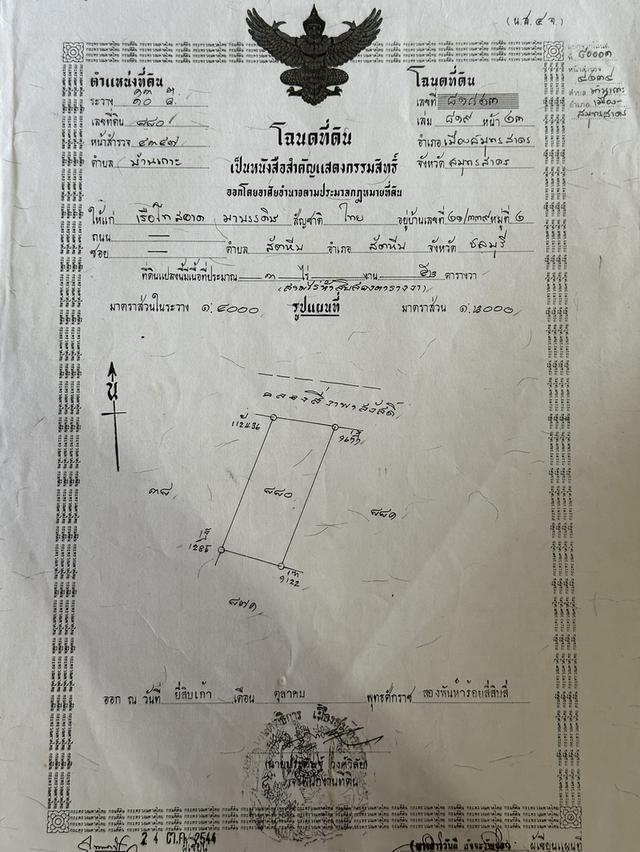 (น.ส. ๔ จ.)
ตำแหน่งที่ดิน
ระวาง
เลขที่ดิน ๘๘๐
หน้าสำรวจ ๔๓๔๗
ตำบล บ้านเกาะ
โฉนดที่ดิน
เลขที่
เล่ม ๘๑๙ หน้า ๒๓
อำเภอ เมืองสมุทรสาคร
จังหวัด สมุทรสาคร
โฉนดที่ดิน
เป็นหนังสือสำคัญแสดงกรรมสิทธิ์
ออกโดยอาศัยอำนาจตามประมวลกฎหมายที่ดิน
ให้แก่ เรือโท สอาด มาบรรดิษ สัญชาติ ไทย อยู่บ้านเลขที่ ๒๑/๓๓๙ หมู่ที่ ๒
ถนน —
ซอย — ตำบล สัตหีบ อำเภอ สัตหีบ จังหวัด ชลบุรี
ที่ดินแปลงนี้มีเนื้อที่ประมาณ ๓ ไร่ — งาน ๕๒ ตารางวา
(สามไร่ห้าสิบสองตารางวา)
มาตราส่วนในระวาง ๑:๔๐๐๐ รูปแผนที่ มาตราส่วน ๑:๒๐๐๐
น
คลองสี่วาพาสวัสดิ์
๓๘
๘๘๐
๘๘๑
๘๗๑
ออก ณ วันที่ ยี่สิบเก้า เดือน ตุลาคม พุทธศักราช สองพันห้าร้อยสี่สิบสี่
เจ้าพนักงานที่ดิน
2 4 ต.ค. 2544
ผู้เขียนแผนที่